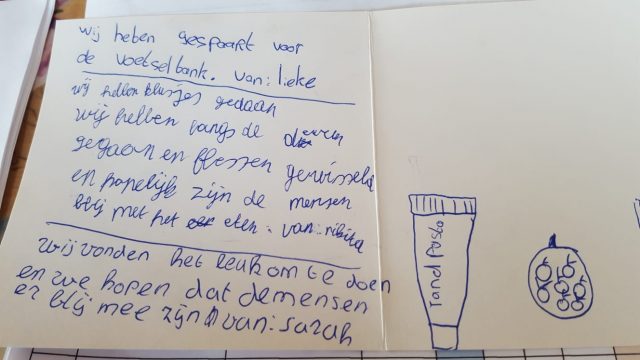 wij heben gespaart voor
de voetselbank. van: lieke
wij hebben klusjes gedaan
wij hebben langs de deuren
gegaan en flessen gewisseld
en hopelijk zijn de mensen
blij met het eten. van:
wij vonden het leuk om te doen
en we hopen dat de mensen
er blij mee zijn van: sarah
Tand pasta